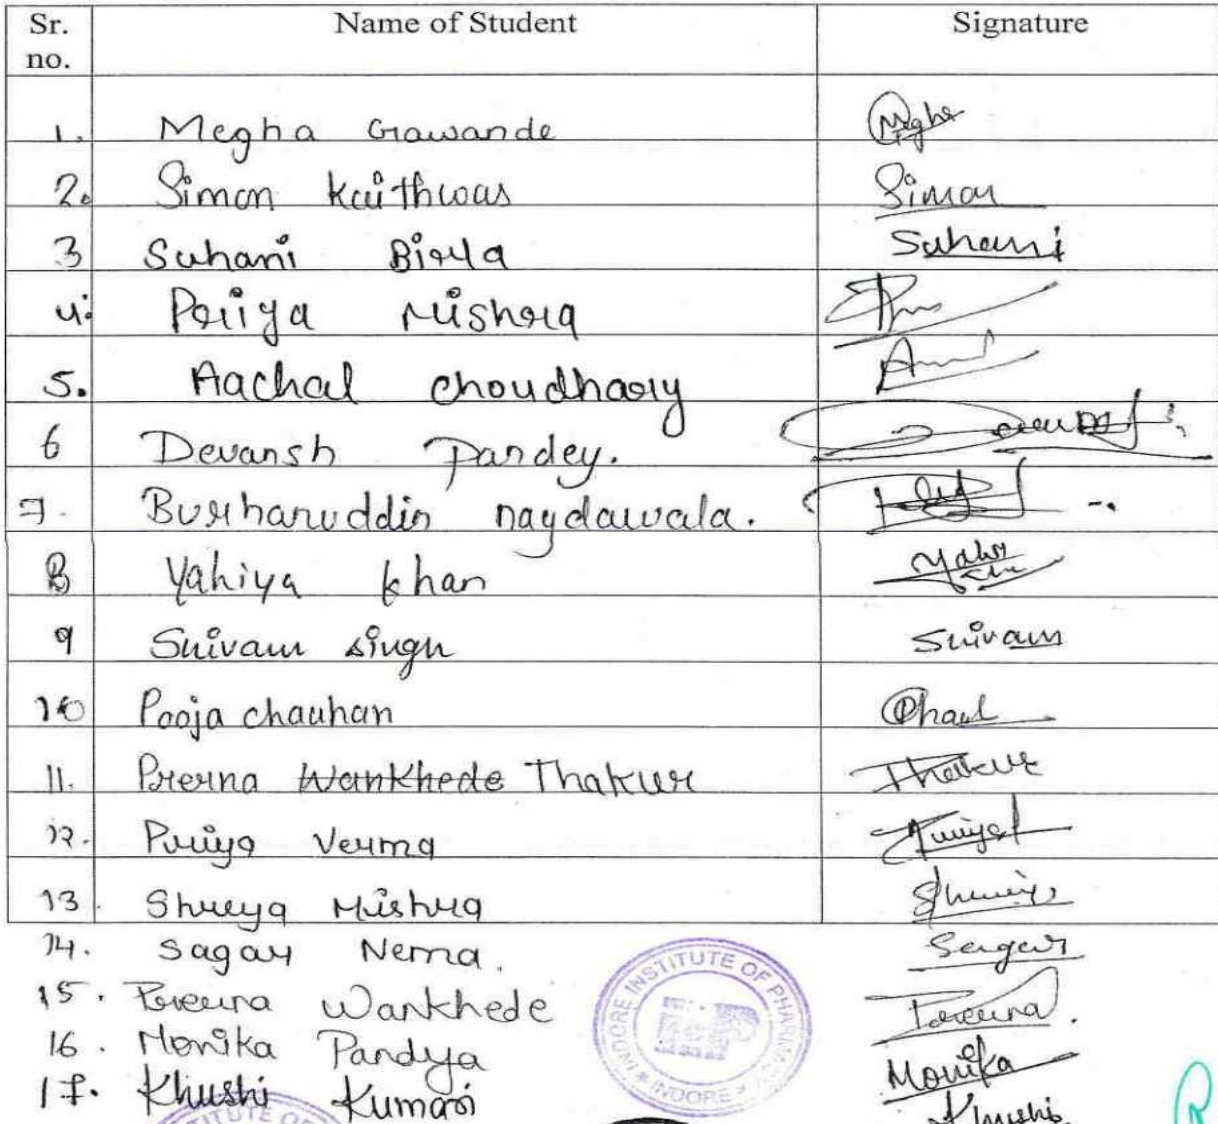 Sr. no. Name of Student Signature
1. Megha Gawande Megha
2. Simon Kaithwas Simon
3 Suhani Birla Suhani
4. Priya Mishra
5. Aachal choudhary
6 Devansh Pandey.
7. Burhanuddin naydawala.
8 Yahiya khan
9 Shivam singh Shivam
10 Pooja chauhan
11. Prerna Wankhede Thakur Thakur
12. Priya Verma Priya
13. Shreya Mishra Shreya
14. Sagar Nema. Sagar
15. Prerna Wankhede Prerna.
16. Monika Pandya Monika
17. Khushi Kumari Khushi
INDORE INSTITUTE OF PHARMACY
IIP
* INDORE *